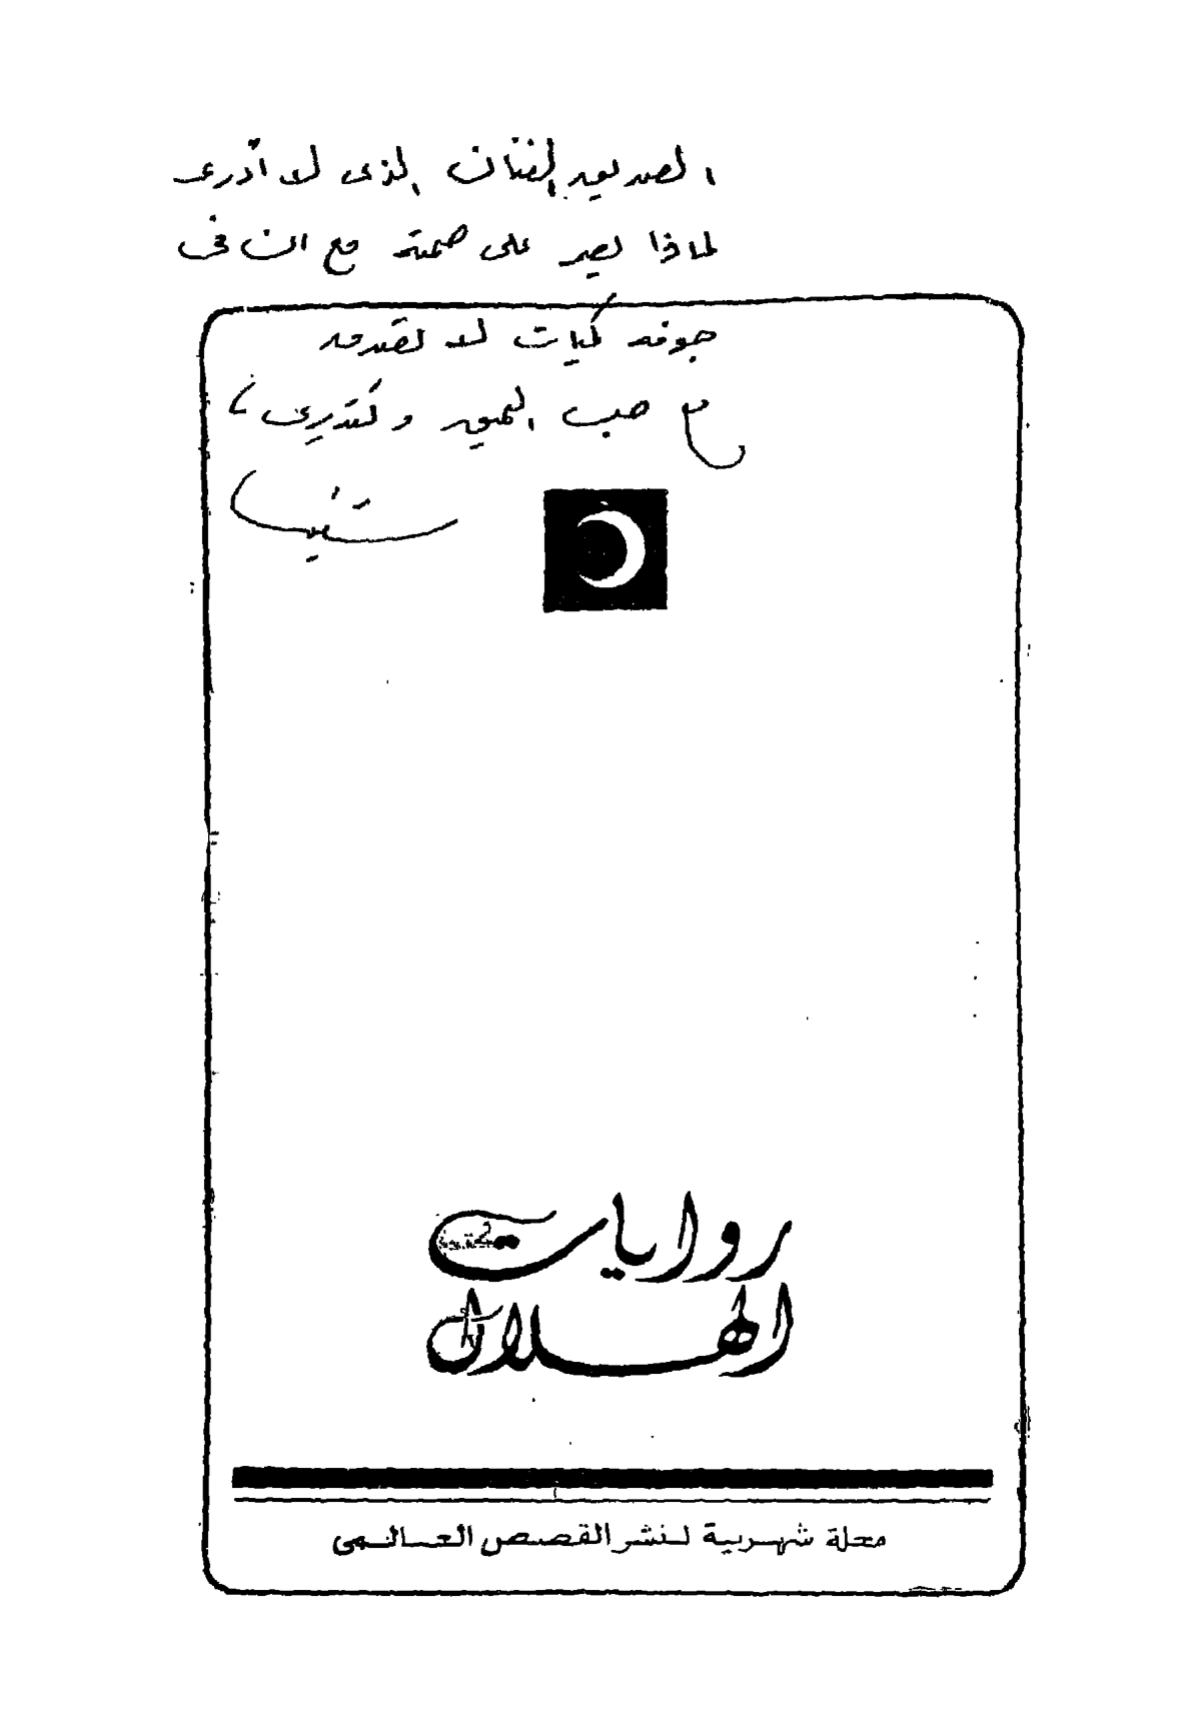 الصديق الفنان الذى لا أدرى
لماذا يصر على صمته مع ان فى
جوفه كلمات لا تقدر
مع حب العميق وتقديرى
روايات
الهلال
مجلة شهرية لنشر القصص العالمى